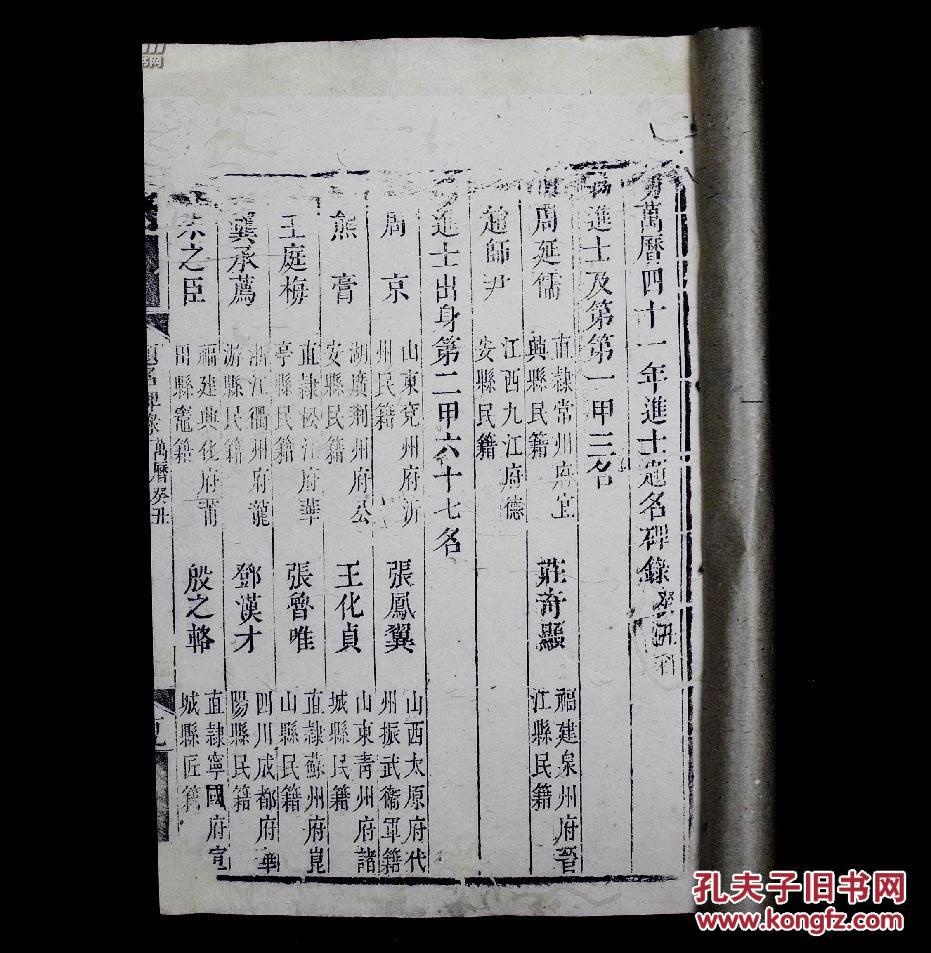 明萬曆四十一年進士題名碑錄癸丑科
賜進士及第第一甲三名
周延儒 直隸常州府宜興縣民籍
莊奇顯 福建泉州府晉江縣民籍
趙師尹 江西九江府德安縣民籍
賜進士出身第二甲六十七名
周京 山東兗州府沂州民籍
張鳳翼 山西太原府代州振武衞軍籍
熊膏 湖廣荆州府公安縣民籍
王化貞 山東青州府諸城縣民籍
王庭梅 直隸松江府華亭縣民籍
張魯唯 直隸蘇州府崑山縣民籍
龔承薦 浙江衢州府龍游縣民籍
鄧漢才 四川成都府華陽縣民籍
之臣 福建興化府莆田縣竈籍
殷之輅 直隸寧國府宣城縣匠籍
題名碑錄 萬曆癸丑
孔夫子旧书网
www.kongfz.com